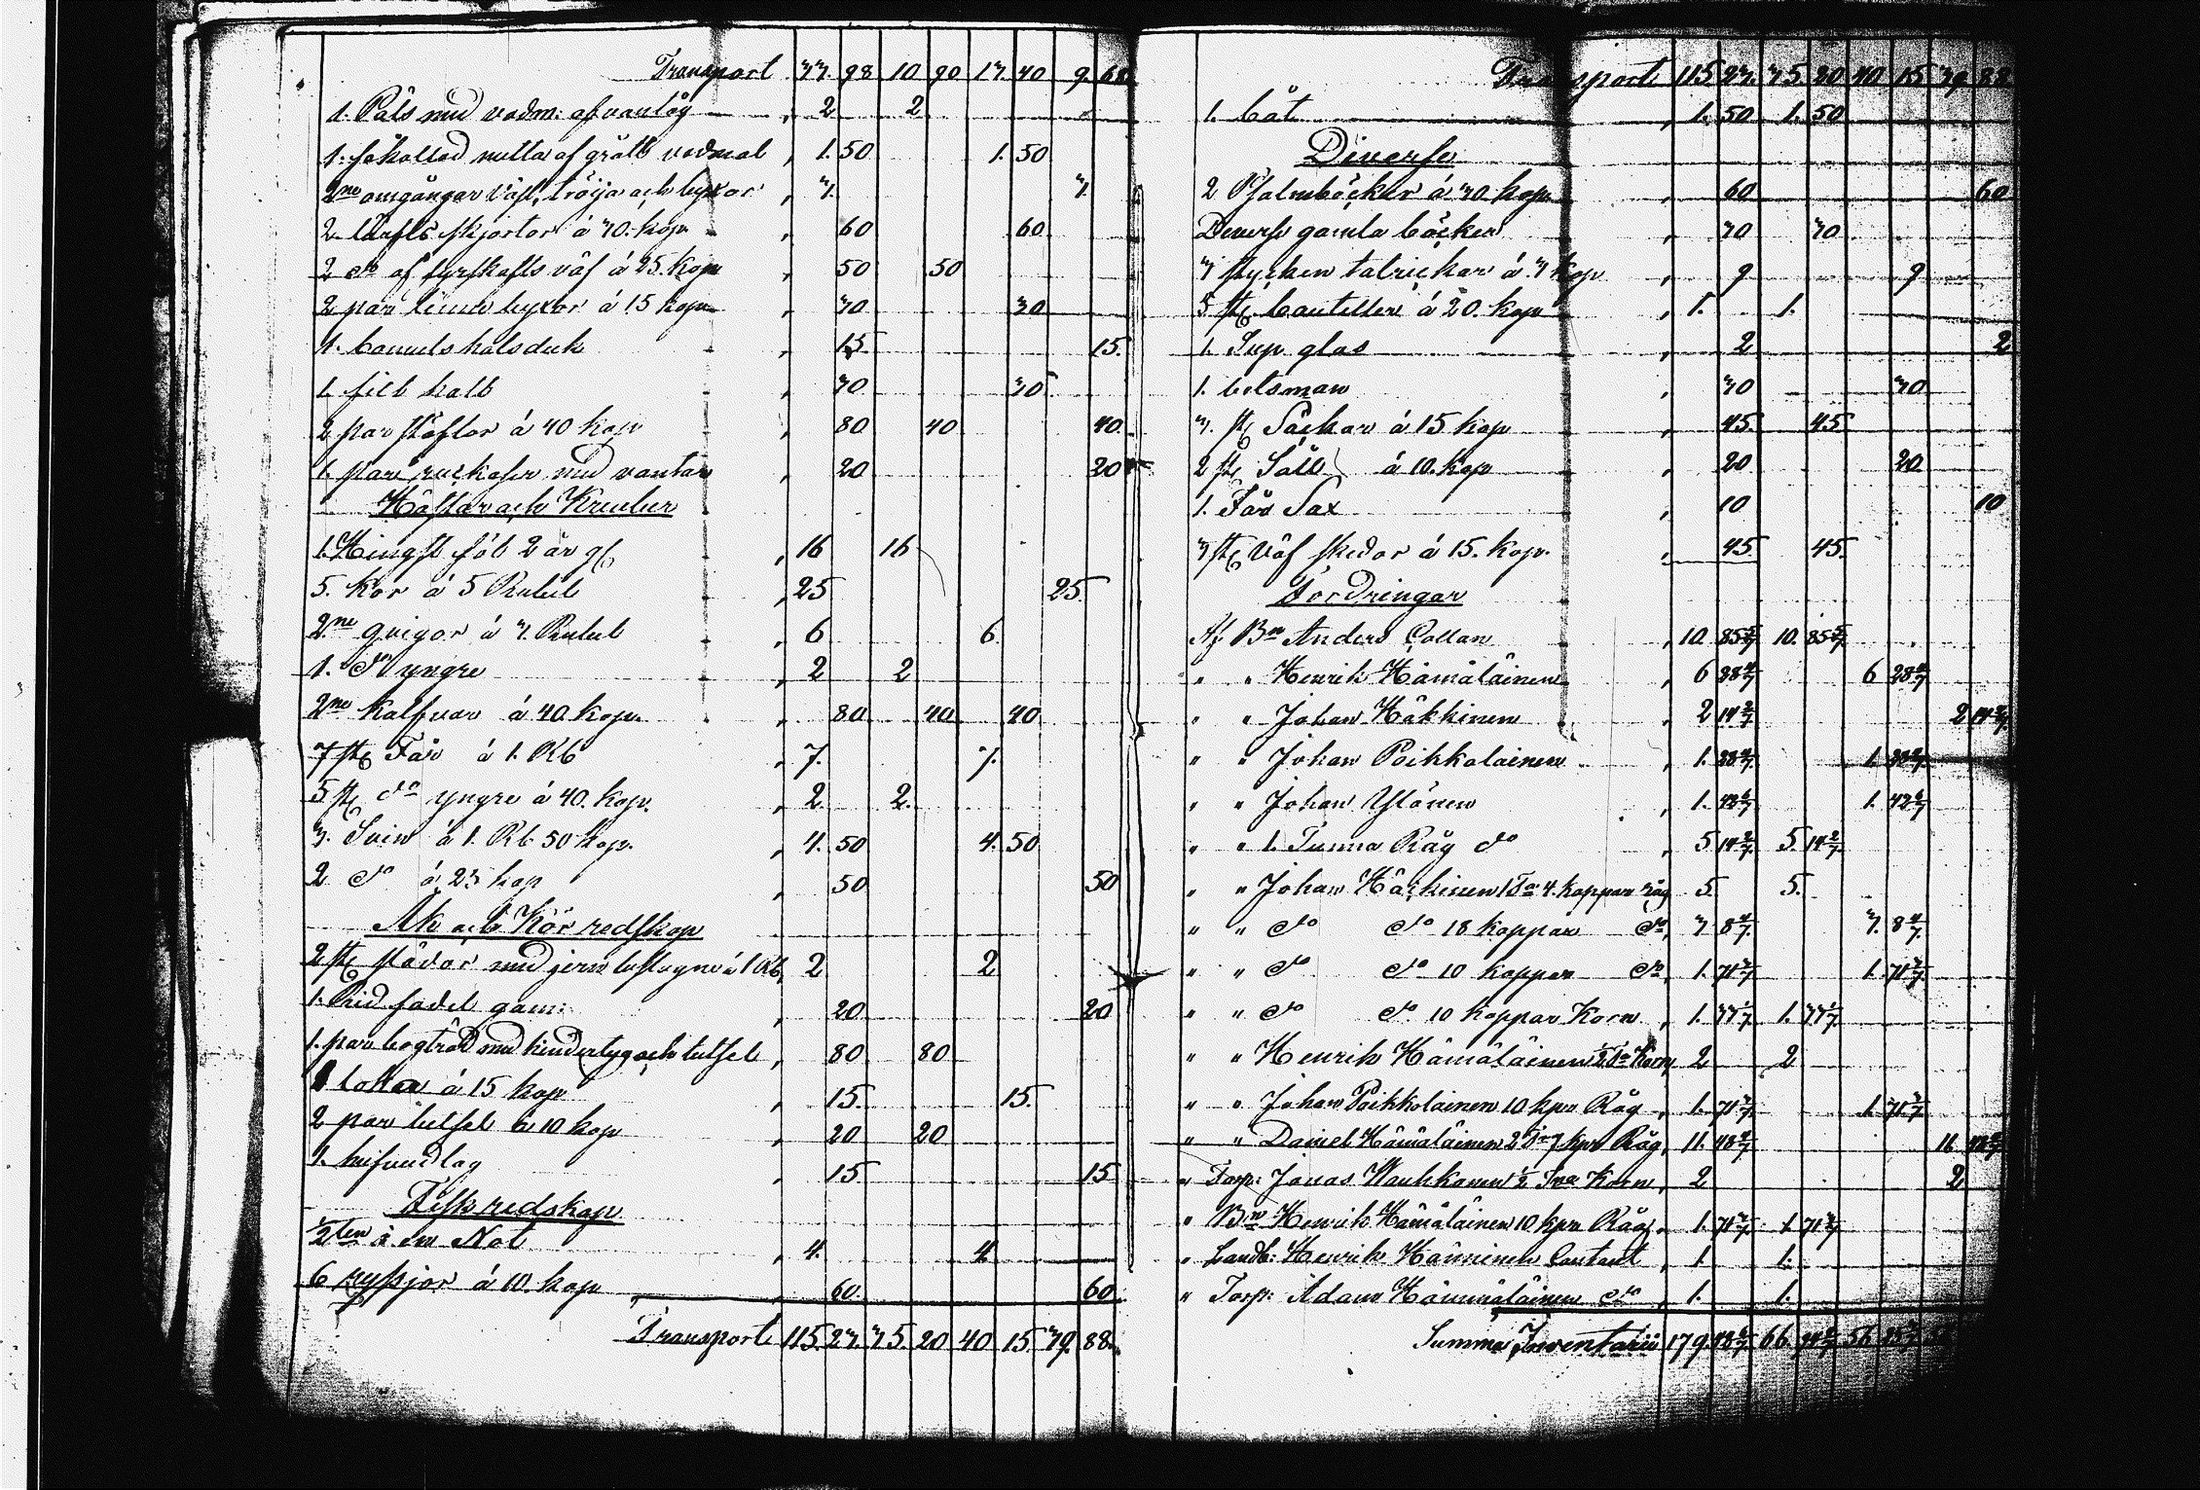 Transport 37. 98 10 90 17. 40 9. 68
1. Påls med vadm: afvanlög " 2 2
1. så kallad mutta af grått vadmal " 1. 50 1. 50
2ne omgångar väst, tröija och byxor " 3. 3.
2 lärfts skjortor á 30. kop " 60 60
2 do af fyrskafts väf á 25. kop " 50 50
2 par linne byxor á 15 kop " 30 30
1. bomuls halsduk " 15. 15.
1. filt hatt " 30 30
2 par stöflor á 40 kop " 80 40 40
1. par ruckaser med vantar " 20 20
Hästar och Kreatur
1. Hingst föl 2 år gl " 16 16
5. Kor á 5 Rubel " 25 25.
2ne qvigor á 3. Rubel " 6 6.
1. do yngre " 2 2
2ne Kalfvar á 40 kop. " 80 40 40
7 st Får á 1. Rb " 7. 7.
5 st do yngre á 40. kop. " 2 2.
3. Svin á 1. Rb 50 kop. " 4. 50 4. 50
2 do á 25 kop " 50 50
Åk och Kör redskap
2 st slädar med jern beslagne á 1 Rb " 2 2
1. Rid sadel gam: " 20 20
1. par bogträd med hindertyg och betsel " 80 80
1 lokka á 15 kop " 15. 15.
2 par betsel á 10 kop " 20 20
1. hufvudlag " 15 15
Fisk redskap
½ten i en Not " 4. 4
6 ryssjor á 10. kop " 60. 60
Transport 115. 23. 35. 20 40 15. 39. 88.
Transport 115. 23. 35. 20 40 15 39. 88
1. båt " 1. 50 1. 50
Diverse
2 Psalmböcker á 30. kop. " 60 60
Diverse gamla böcker " 30 30
3 stycken talrickar á 3 kop " 9 9
5 st bouteller á 20. kop " 1. 1.
1. Sup glas " 2 2
1. betsman " 30 30
3. st Säckar á 15 kop " 45. 45.
2 st Såll á 10. kop " 20 20
1. Får Sax " 10 10
3 st Väf skedar á 15. kop. " 45. 45.
Fordringar
Af Bn Anders Collan " 10. 85 5/7 10. 85 5/7
" " Henrik Hämäläinen " 6 28 4/7 6 28 4/7
" " Johan Häkkinen " 2 14 2/7 2 14 2/7
" " Johan Poikkolainen " 1. 28 4/7 1. 28 4/7
" " Johan Ylönen " 1. 42 6/7 1. 42 6/7
" " 1. Tunna Råg do " 5 14 2/7 5 14 2/7
" " Johan Häckinen 1 Ta 4. kappar råg 5. 5.
" " do do 18 kappar do " 3 8 4/7 3. 8 4/7
" " do do 10 kappar do " 1. 71 3/7 1. 71 3/7
" " do do 10 kappar Korn " 1. 33 1/7 1. 33 1/7
" " Henrik Hämäläinen ½ Ta Korn " 2 2
" " Johan Poikkolainen 10 kpr Råg " 1. 71 3/7 1. 71 3/7
" " Daniel Hämäläinen 2 Tr 7 kpr Råg " 11. 48 4/7 11. 48 4/7
" Torp: Jonas Wauhkonen ½ Tna Korn " 2 2
" Bn Henrik Hämäläinen 10 kpr Råg " 1. 71 3/7 1. 71 3/7
" Landb: Henrik Hänninen Contant " 1 1.
" Torp: Adam Hämäläinen do " 1. 1.
Summa Inventarii 179. 48 66.